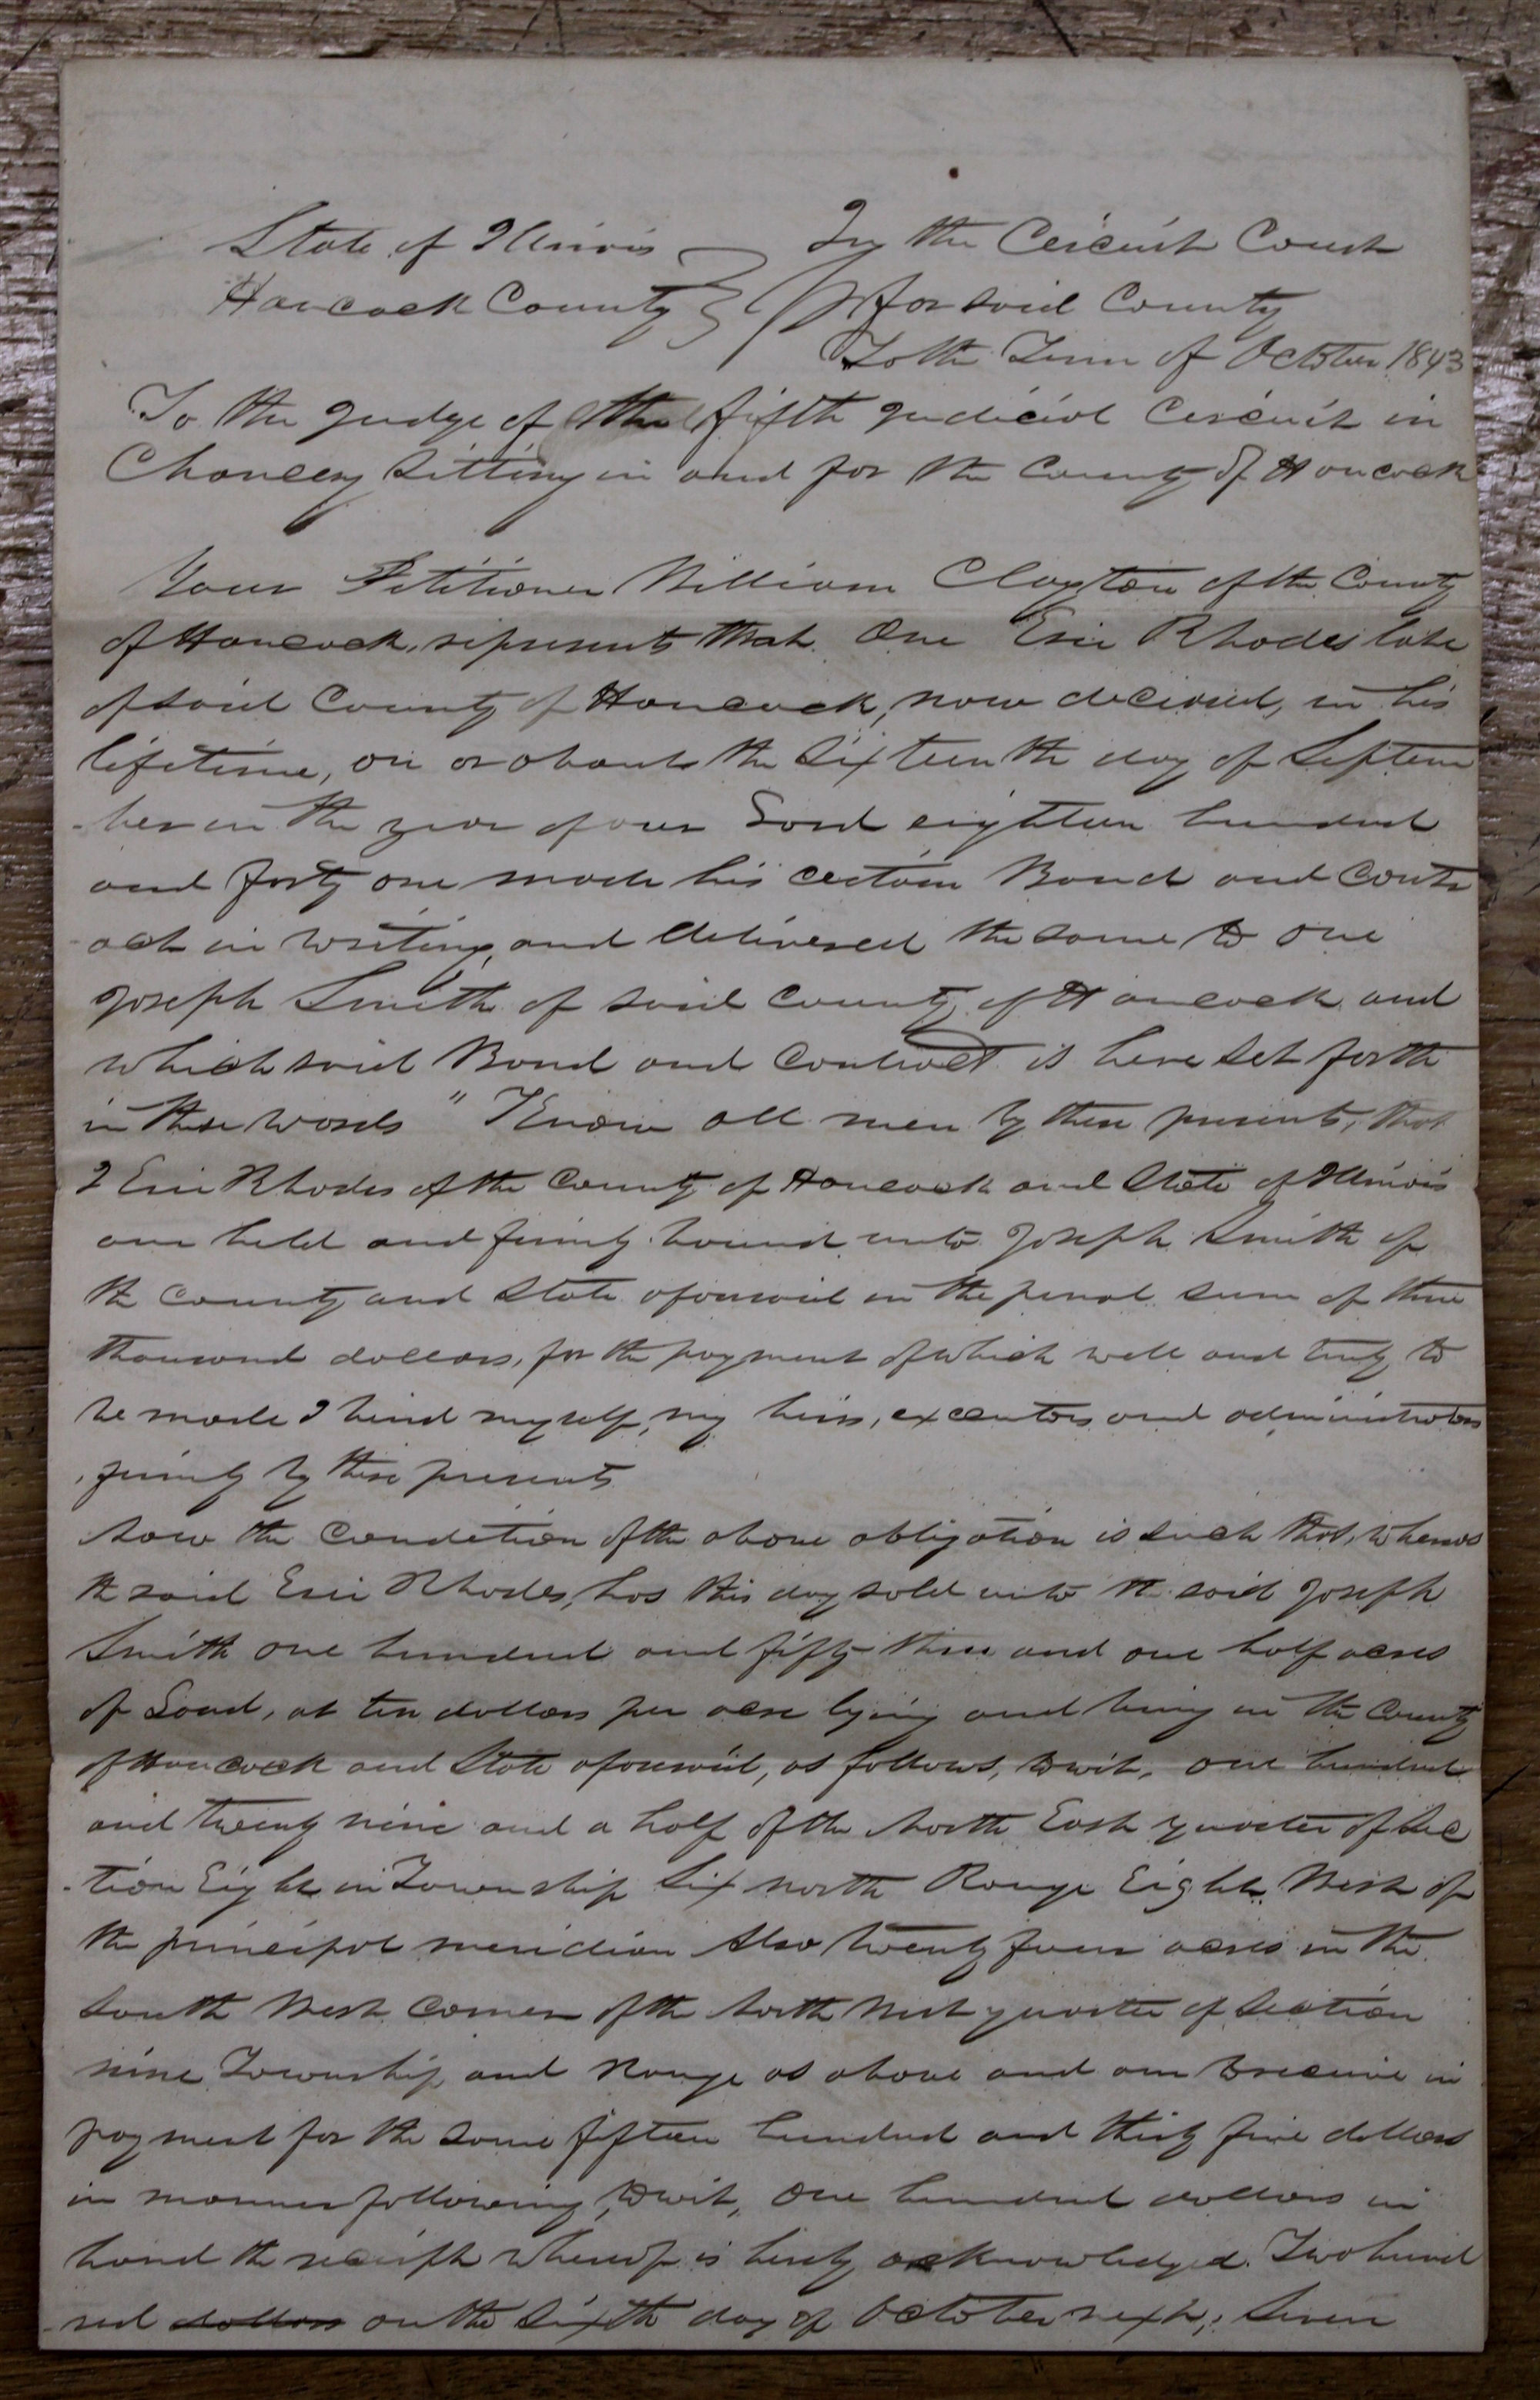 State of Illinois In the Circuit Court
Hancock County for said County
To the Term of October 1843
To the Judge of the fifth Judicial Circuit in
Chancery sitting in and for the County of Hancock
Your Petitioner William Clayton of the County
of Hancock, represents that One Eric Rhodes late
of said County of Hancock, now deceased, in his
lifetime, on or about the Sixteenth day of Septem
-ber in the year of our Lord eighteen hundred
and forty one made his certain Bond and Contr
-act in writing, and delivered the same to one
Joseph Smith of said County of Hancock and
which said Bond and Contract is here set forth
in these words " Know all men by these presents, that
I Eric Rhodes of the County of Hancock and State of Illinois
am held and firmly bound unto Joseph Smith of
the County and State aforesaid in the penal sum of three
thousand dollars, for the payment of which well and truly to
be made I bind myself, my heirs, executors and administrators
firmly by these presents
Now the Condition of the above obligation is such that, whereas
the said Eric Rhodes, has this day sold unto the said Joseph
Smith one hundred and fifty three and one half acres
of Land, at ten dollars per acre lying and being in the County
of Hancock and State aforesaid, as follows, towit, one hundred
and twenty nine and a half of the North East quarter of Sec
-tion Eight in Township Six north Range Eight West of
the principal meridian Also twenty four acres in the
South West Corner of the North West quarter of Section
nine Township and Range as above and am to receive in
payment for the same fifteen hundred and thirty five dollars
in manner following, towit, One hundred dollars in
hand the receipt whereof is hereby acknowledged. Two hund
-red dollars on the Sixth day of October next; Seven